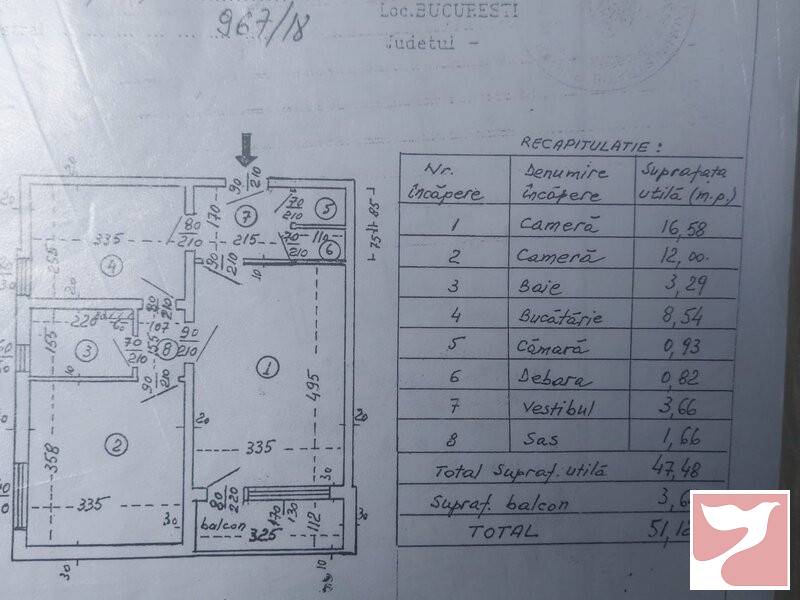 967/18
Loc.BUCURESTI
Judetul -
RECAPITULATIE :
Nr. încăpere Denumire încăpere Suprafața utilă (m.p.)
1 Cameră 16,58
2 Cameră 12,00.
3 Baie 3,29
4 Bucătărie 8,54
5 Cămară 0,93
6 Debara 0,82
7 Vestibul 3,66
8 Sas 1,66
Total Supraf. utilă 47,48
Supraf. balcon 3,6
TOTAL 51,1
20
90 210
170
7
70 210
5
85
80 210
335
215
70 210
110
6
75
255
4
90 210
10
80 210
220
107
90 210
155
3
70 210
155
8
1
10
90 210
495
2
20
20
358
335
335
30
80 220
30
balcon
170 130
112
325
30
30